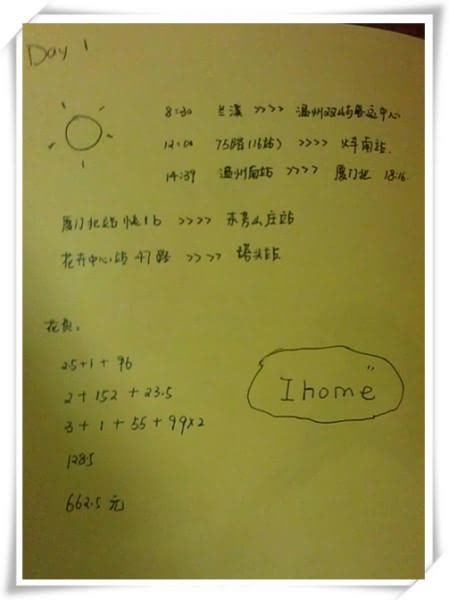 Day 1
8:30 兰溪 >>>> 温州双屿客运中心
12:00 75路(16站) >>>> 火车南站
14:39 温州南站 >>>> 厦门北 18:16
厦门北站 快1b >>>> 东芳山庄站
花卉中心站 47路 >>>> 塔头站
花费:
25+1+96
2+152+23.5
3+1+55+99×2
128.5
662.5 元
Ihome